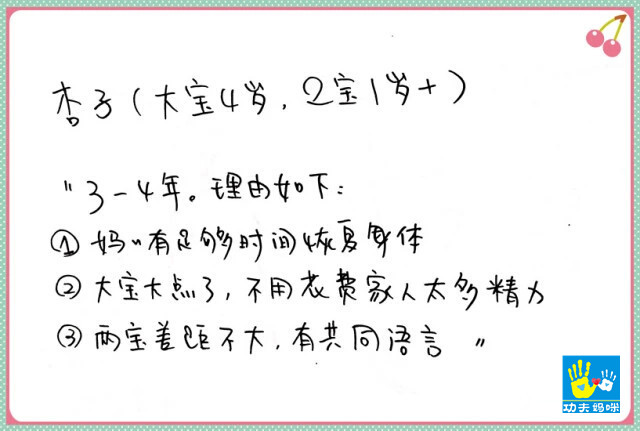 杏子（大宝4岁，2宝1岁+）
"3-4年。理由如下：
①妈"有足够时间恢复身体
②大宝大点了，不用花费家人太多精力
③两宝差距不大，有共同语言"
功夫妈咪